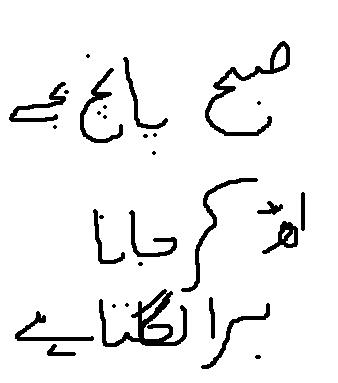 صبح پانچ بجے
اٹھ کر جانا
برا لگتا ہے